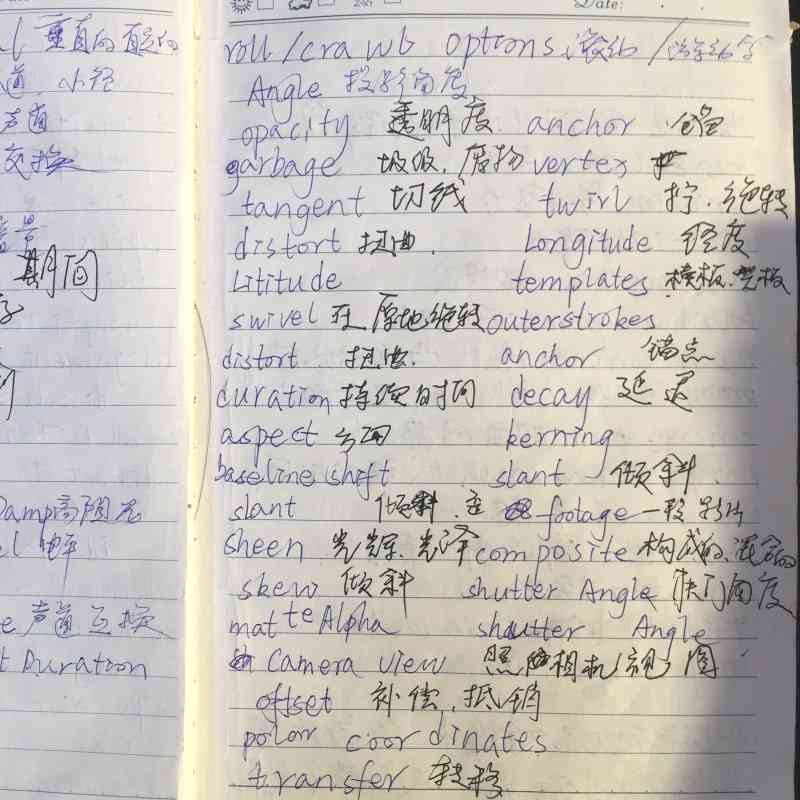 Date:
垂直的
道 小径
声道
交换
期间
Damp高阻尼
声道互换
Duration
roll/crawl options 滚动/
Angle 投影角度
opacity 透明度 anchor
garbage 垃圾,废物 vertex
tangent 切线 twirl 拧,绝转
distort 扭曲. Longitude 经度
Lititude templates 模板.
swivel 在原地绝转 outerstrokes
distort 扭曲. anchor 锚点
duration 持续时间 decay 延迟
aspect 方面 kerning
baseline shift slant 倾斜.
slant 倾斜. footage 一段影片
sheen 光辉.光泽 composite 构成的.混合的
skew 倾斜 shutter Angle 快门角度
matte Alpha shutter Angle
Camera view 照相机视图
offset 补偿.抵销
polar coordinates
transfer 转移